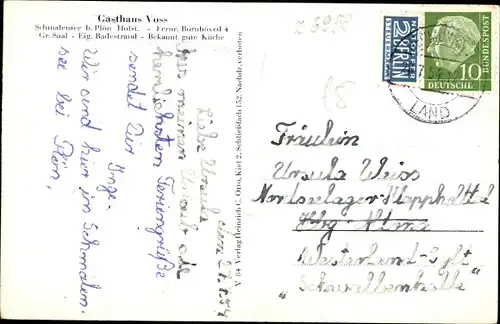 Gasthaus Voss
Schmalensee b. Plön Holst. - Fernr. Bornhöved 4
Gr. Saal - Eig. Badestrand - Bekannt gute Küche
Liebe Ursula
Aus meinem Urlaub
herzlichsten Feriengrüße
sendet Dir
Inge.
Wir sind hier in Schmalen.
see bei Plön.
V 84 Verlag Heinrich C. Otto, Kiel 2, Schließfach 152. Nachdr. verboten
NOTOPFER
2 BERLIN
STEUERMARKE
DEUTSCHE BUNDESPOST
10
LAND
Fräulein
Ursula Weiss
Klappholttal
Hbg - Altona
Westerland - Sylt
"Schwalbenhalle"